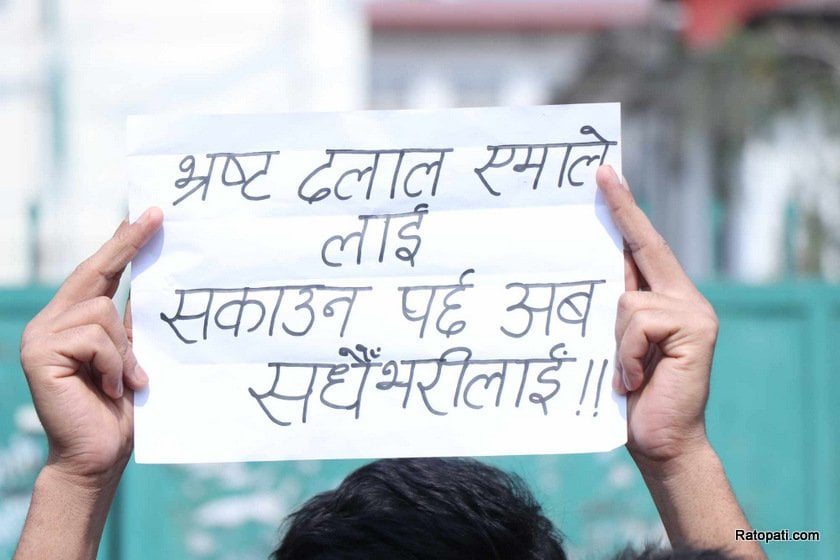 भ्रष्ट दलाल एमाले
लाई
सकाउन पर्द्द अब
सधैँभरीलाई !!
Ratopati.com